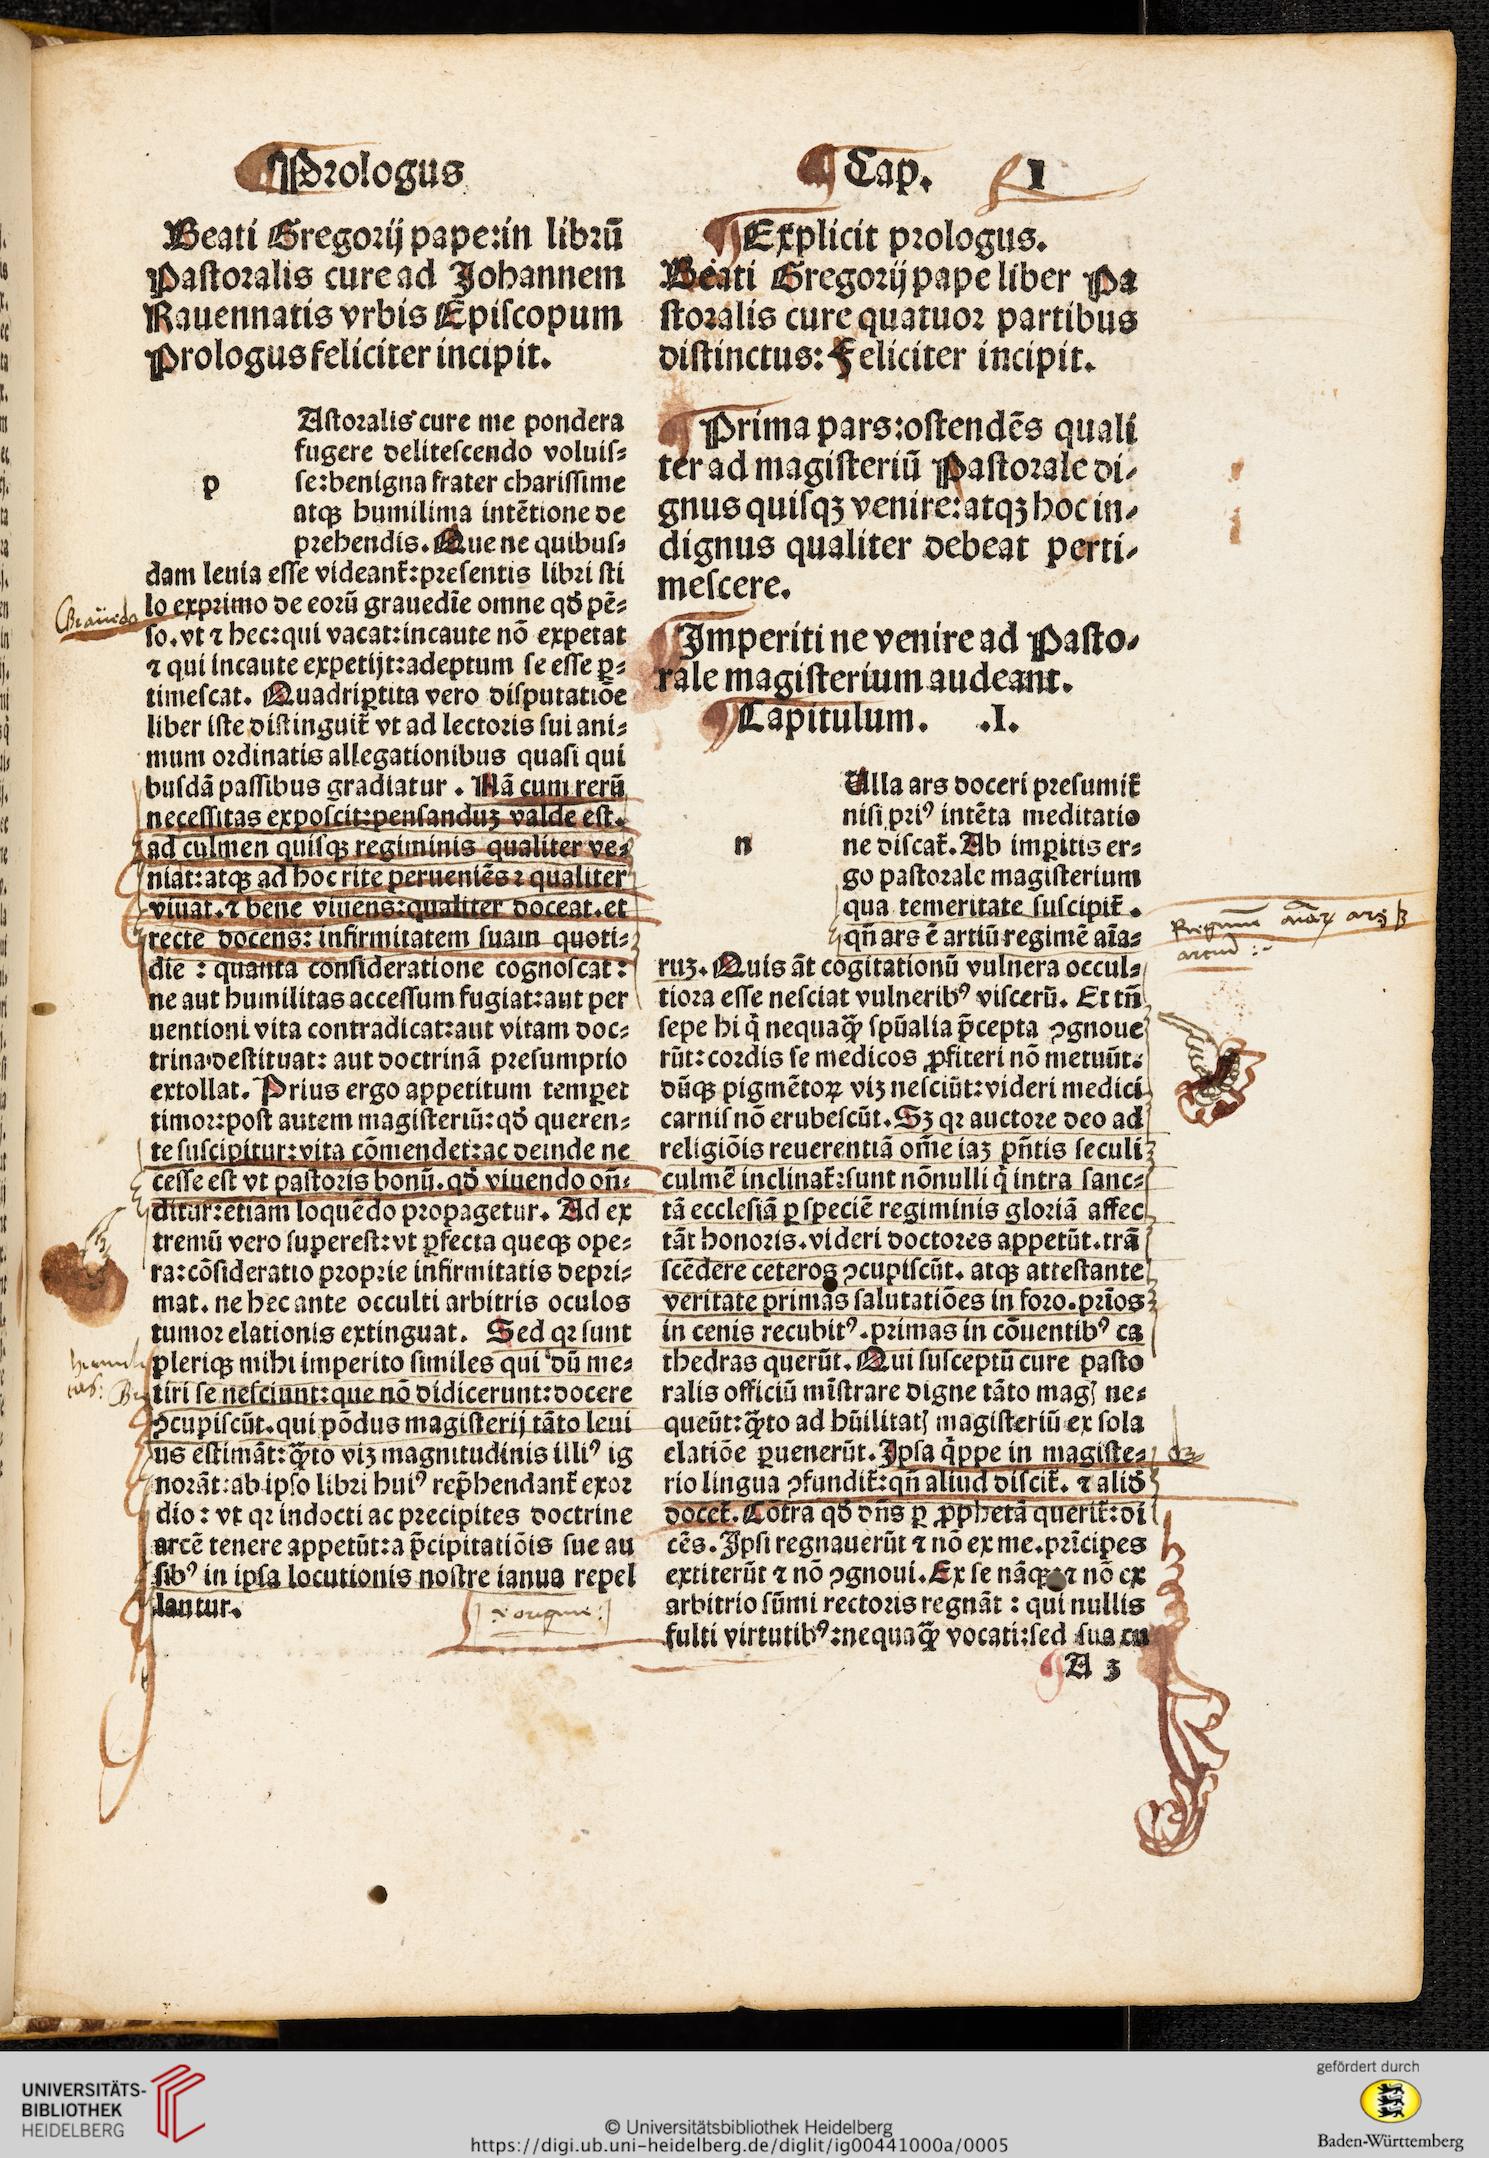 Prologus
Beati Gregorij pape:in librū
Pastoralis cure ad Johannem
Rauennatis vrbis Ep̄iscopum
Prologus feliciter incipit.
Astoralis cure me pondera
fugere delitescendo voluis⸗
p
se:benigna frater charissime
atqꝫ humilima intētione de
prehendis. Que ne quibus⸗
dam leuia esse videant᷑:presentis libri sti
lo exprimo de eorū grauedīe omne qd̄ pē⸗
so. vt ⁊ hec:qui vacat:incaute nō expetat
⁊ qui incaute expetijt:adeptum se esse ꝑ⸗
timescat. Quadriꝑtita vero disputatiōe
liber iste distinguit᷑ vt ad lectoris sui ani⸗
mum ordinatis allegationibus quasi qui
busdā passibus gradiatur . Nā cum rerū
necessitas exposcit:pensanduꝫ valde est.
ad culmen quisqꝫ regiminis qualiter ve⸗
niat:atqꝫ ad hoc rite perueniēs ⁊ qualiter
viuat. ⁊ bene viuens:qualiter doceat. et
recte docens: infirmitatem suam quoti⸗
die : quanta consideratione cognoscat :
ne aut humilitas accessum fugiat:aut per
uentioni vita contradicat:aut vitam doc⸗
trina destituat: aut doctrinā presumptio
extollat. Prius ergo appetitum temꝑet
timor:post autem magisteriū:qd̄ queren⸗
te suscipitur:vita cōmendet:ac deinde ne
cesse est vt pastoris bonū. qd̄ viuendo on̄⸗
ditur:etiam loquēdo propagetur. Ad ex
tremū vero superest:vt ꝑfecta queqꝫ ope⸗
ra:cōsideratio proprie infirmitatis depri⸗
mat. ne hec ante occulti arbitris oculos
tumor elationis extinguat. Sed qꝛ sunt
pleriqꝫ mihi imperito similes qui dū me⸗
tiri se nesciunt:que nō didicerunt:docere
ꝯcupiscūt. qui pōdus magisterij tāto leui
us estimāt:q̄ꝫto viꝫ magnitudinis illiꝰ ig
norāt:ab ipso libri huiꝰ rep̄hendant᷑ exor
dio : vt qꝛ indocti ac precipites doctrine
arcē tenere appetūt:a p̄cipitatiōis sue au
sibꝰ in ipsa locutionis nostre ianua repel
lantur.
Cap. I
Explicit prologus.
Beati Gregorij pape liber Pa
storalis cure quatuor partibus
distinctus: Feliciter incipit.
Prima pars:ostendēs quali
ter ad magisteriū Pastorale di⸗
gnus quisqꝫ venire:atqꝫ hoc in⸗
dignus qualiter debeat perti⸗
mescere.
Imperiti ne venire ad Pasto⸗
rale magisterium audeant.
Capitulum. .I.
Ulla ars doceri presumit᷑
nisi priꝰ intēta meditatio
n
ne discat᷑. Ab imꝑitis er⸗
go pastorale magisterium
qua temeritate suscipit᷑ .
qn̄ ars ē artiū regimē aīa⸗
ruꝫ. Quis āt cogitationū vulnera occul⸗
tiora esse nesciat vulneribꝰ viscerū. Et tn̄
sepe hi q̇ nequaq̄ꝫ spūalia p̄cepta ꝯgnoue
rūt: cordis se medicos ꝓfiteri nō metuūt:
dūqꝫ pigmētoꝝ viꝫ nesciūt:videri medici
carnis nō erubescūt. Sꝫ qꝛ auctore deo ad
religiōis reuerentiā om̄e iaꝫ pn̄tis seculi
culmē inclinat᷑:sunt nōnulli q̇ intra sanc⸗
tā ecclesiā ꝑ speciē regiminis gloriā affec
tāt honoris. videri doctores appetūt. trā
scēdere ceteros ꝯcupiscūt. atqꝫ attestante
veritate primas salutatiōes in foro. prīos
in cenis recubitꝰ. primas in cōuentibꝰ ca
thedras querūt. Qui susceptū cure pasto
ralis officiū mīstrare digne tāto magꝭ ne⸗
queūt:q̄ꝫto ad hūilitatꝭ magisteriū ex sola
elatiōe ꝑuenerūt. Ipsa q̇ppe in magiste⸗
rio lingua ꝯfundit᷑:qn̄ aliud discit᷑. ⁊ alid̄
docet᷑. Cōtra qd̄ dn̄s ꝑ ꝓphetā querit᷑:di
cēs. Ipsi regnauerūt ⁊ nō ex me. prīcipes
extiterūt ⁊ nō ꝯgnoui. Ex se nāqꝫ ⁊ nō ex
arbitrio sūmi rectoris regnāt : qui nullis
fulti virtutibꝰ:nequaq̄ꝫ vocati:sed sua cu
A 3
UNIVERSITÄTS-
BIBLIOTHEK
HEIDELBERG
© Universitätsbibliothek Heidelberg
https://digi.ub.uni-heidelberg.de/diglit/ig00441000a/0005
gefördert durch
Baden-Württemberg